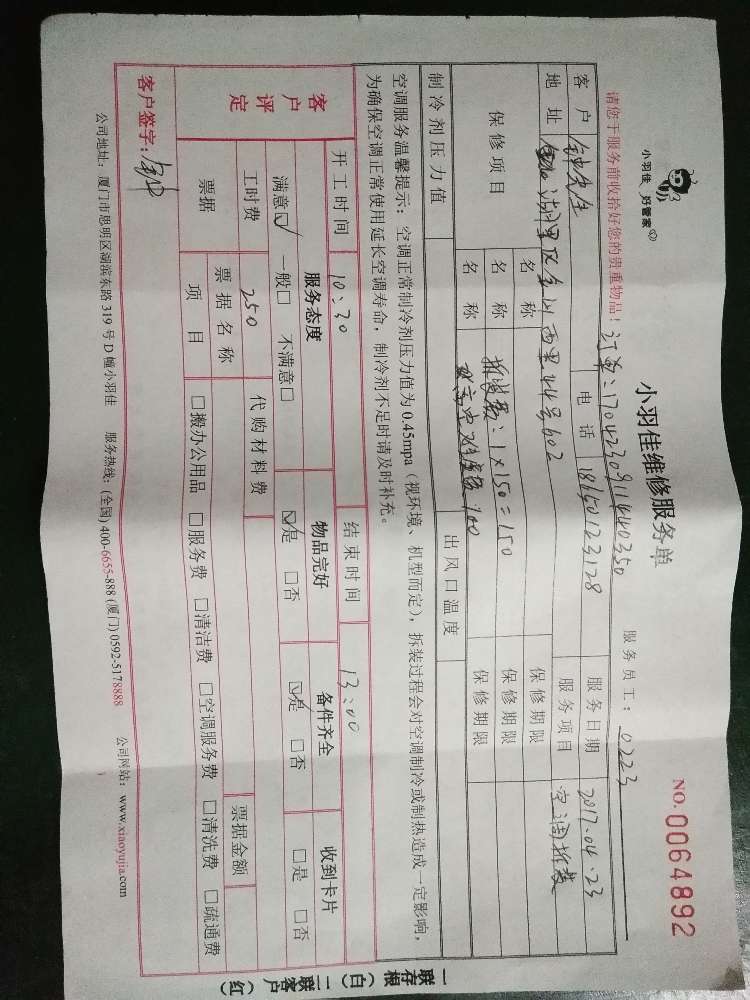 小羽佳 好管家
小羽佳维修服务单
NO.0064892
请您于服务前收拾好您的贵重物品！ 订单：170423091440350 服务员工：0223
客户 钟先生 电话 18650123128 服务日期 2017.04.23
地址 湖里区金山西里44号602 服务项目 空调拆装
保修项目 名称 保修期限
名称 拆装费：1×150=150 保修期限
名称 100 保修期限
制冷剂压力值 出风口温度
空调服务温馨提示：空调正常制冷剂压力值为0.45mpa（视环境、机型而定），拆装过程会对空调制冷或制热造成一定影响，
为确保空调正常使用延长空调寿命，制冷剂不足时请及时补充。
开工时间 10:30 结束时间 13:00
客户评定 服务态度 物品完好 备件齐全 收到卡片
满意☑ 一般□ 不满意□ ☑是 □否 ☑是 □否 □是 □否
工时费 250 代购材料费
票据 票据名称 票据金额
项目 □搬办公用品 □服务费 □清洁费 □空调服务费 □清洗费 □疏通费
客户签字：
公司地址：厦门市思明区湖滨东路319号D幢小羽佳 服务热线：(全国)400-6655-888 (厦门)0592-5178888 公司网站：www.xiaoyujia.com
一联存根（白）二联客户（红）